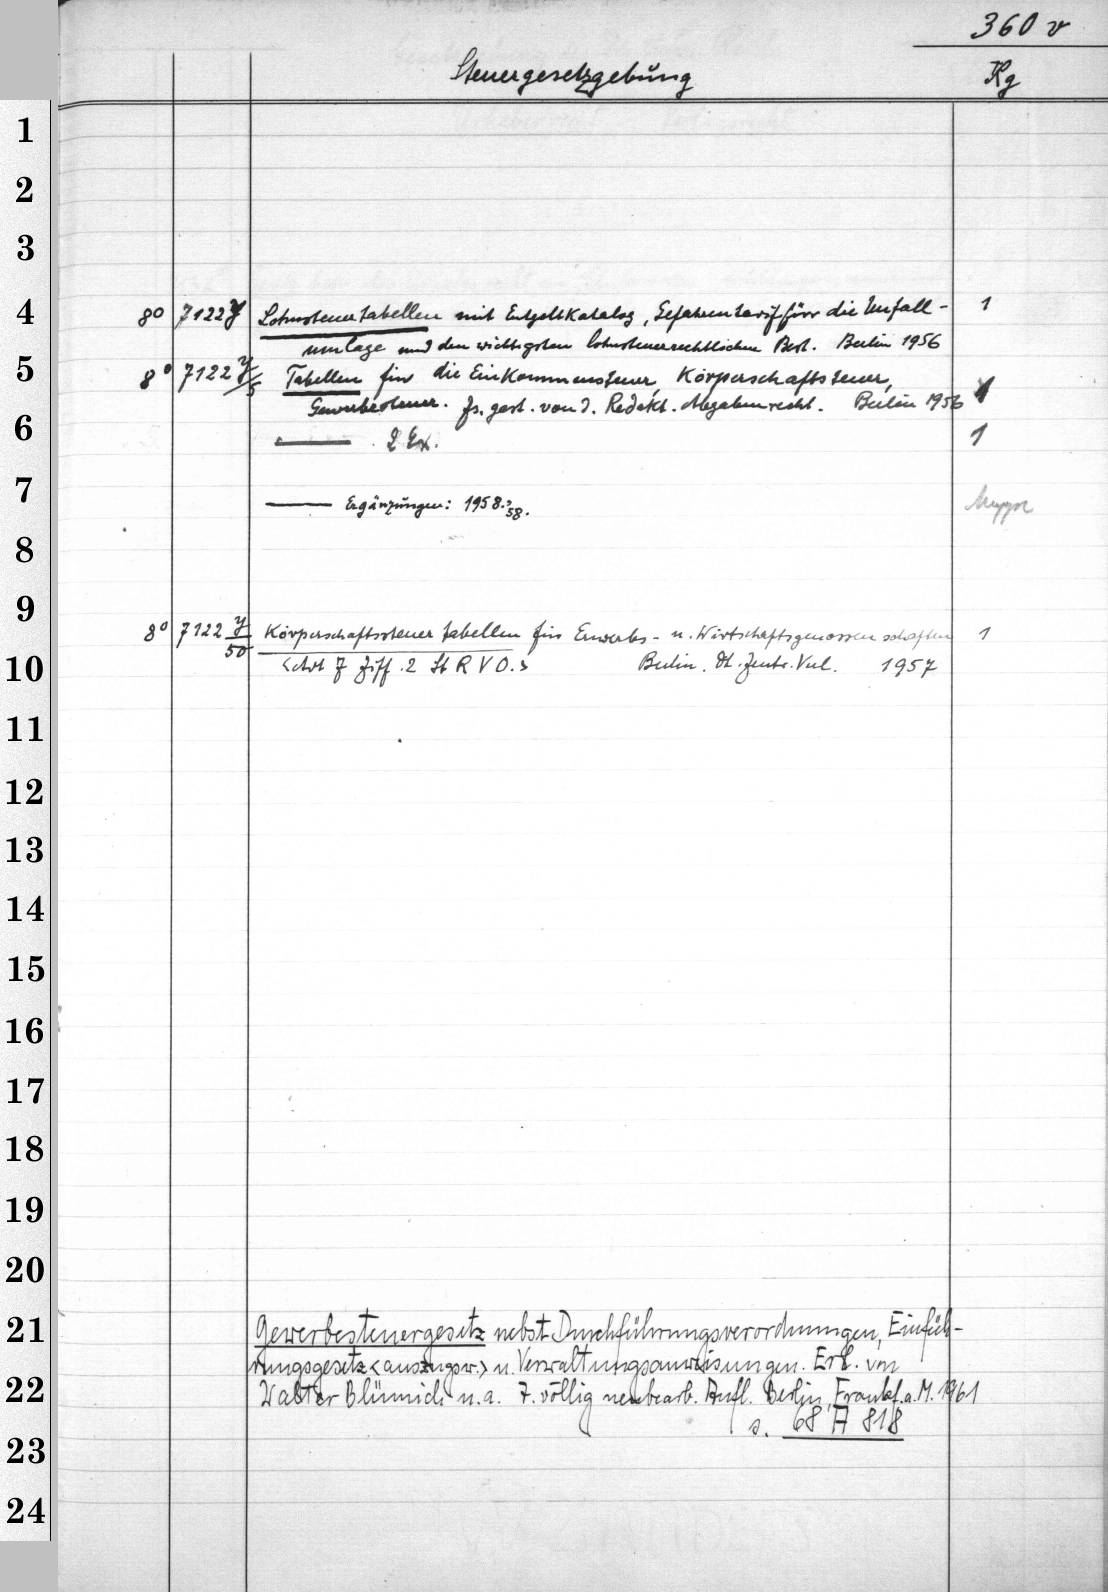 360 v
Steuergesetzgebung Kg
1
2
3
4 8° 7122 y Lohnsteuertabellen mit Entgeltkatalog, Gefahrentarif für die Unfall- 1
umlage und den wichtigsten lohnsteuerrechtlichen Best. Berlin 1956
5 8° 7122 y/5 Tabellen für die Einkommensteuer, Körperschaftsteuer,
Gewerbesteuer. Zs.gest. von d. Redakt. Abgabenrecht. Berlin 1956 1
6 — . 2 Ex. 1
7 — Ergänzungen: 1958. 58.
8
9 8° 7122 y/50 Körperschaftssteuertabellen für Erwerbs- u. Wirtschaftsgenossenschaften 1
10 <Abt 7 Ziff. 2 St R V O.> Berlin. Dt. Zentr. Verl. 1957
11
12
13
14
15
16
17
18
19
20
21 Gewerbesteuergesetz nebst Durchführungsverordnungen, Einfüh-
rungsgesetz <auszugsw.> u. Verwaltungsanweisungen. Erl. von
22 Walter Blümich u. a. 7. völlig neubearb. Aufl. Berlin, Frankf. a. M. 1961
s. 68 A 818
23
24